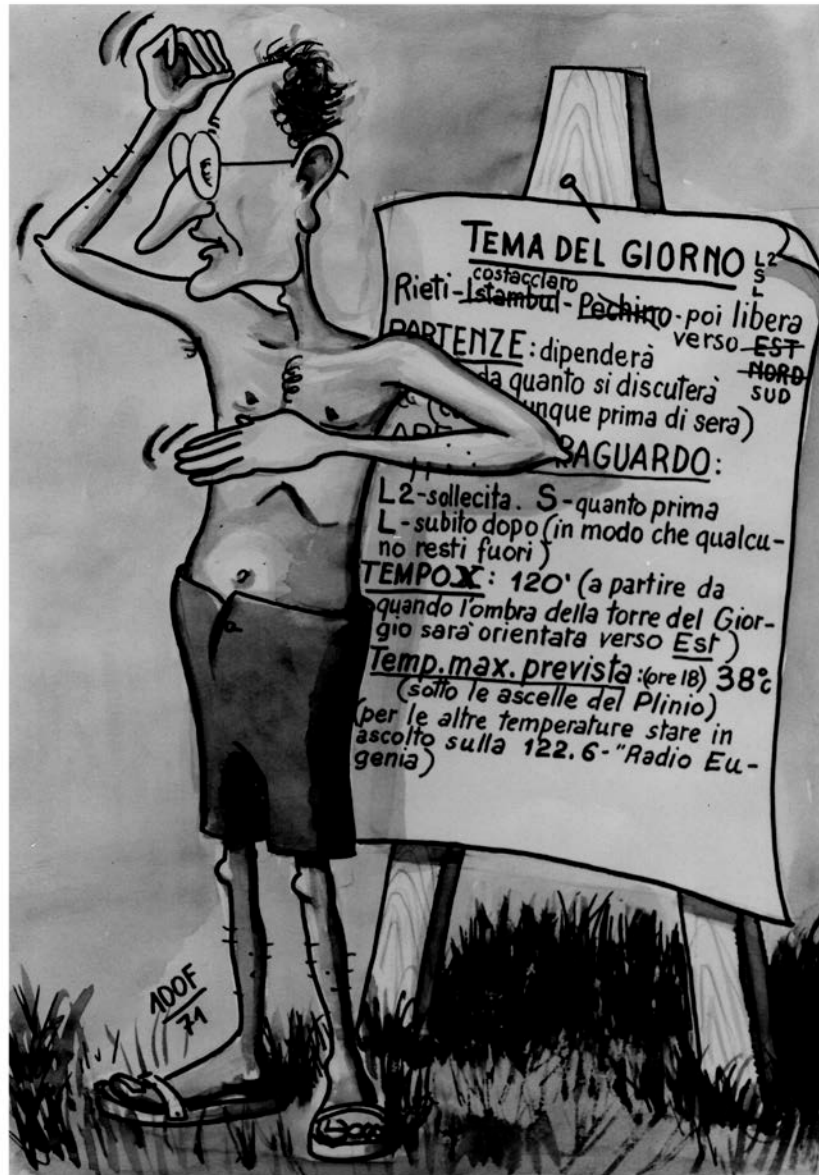 TEMA DEL GIORNO
L2
S
L
costacciaro
Rieti-Istambul-Pechino-poi libera
verso EST
NORD
SUD
PARTENZE: dipenderà
da quanto si discuterà
unque prima di sera)
RAGUARDO:
L2-sollecita. S-quanto prima
L-subito dopo (in modo che qualcu-
no resti fuori)
TEMPO X: 120' (a partire da
quando l'ombra della torre del Gior-
gio sarà orientata verso Est)
Temp.max.prevista:(ore 18) 38°c
(sotto le ascelle del Plinio)
(per le altre temperature stare in
ascolto sulla 122.6-"Radio Eu-
genia)
1DOF
71